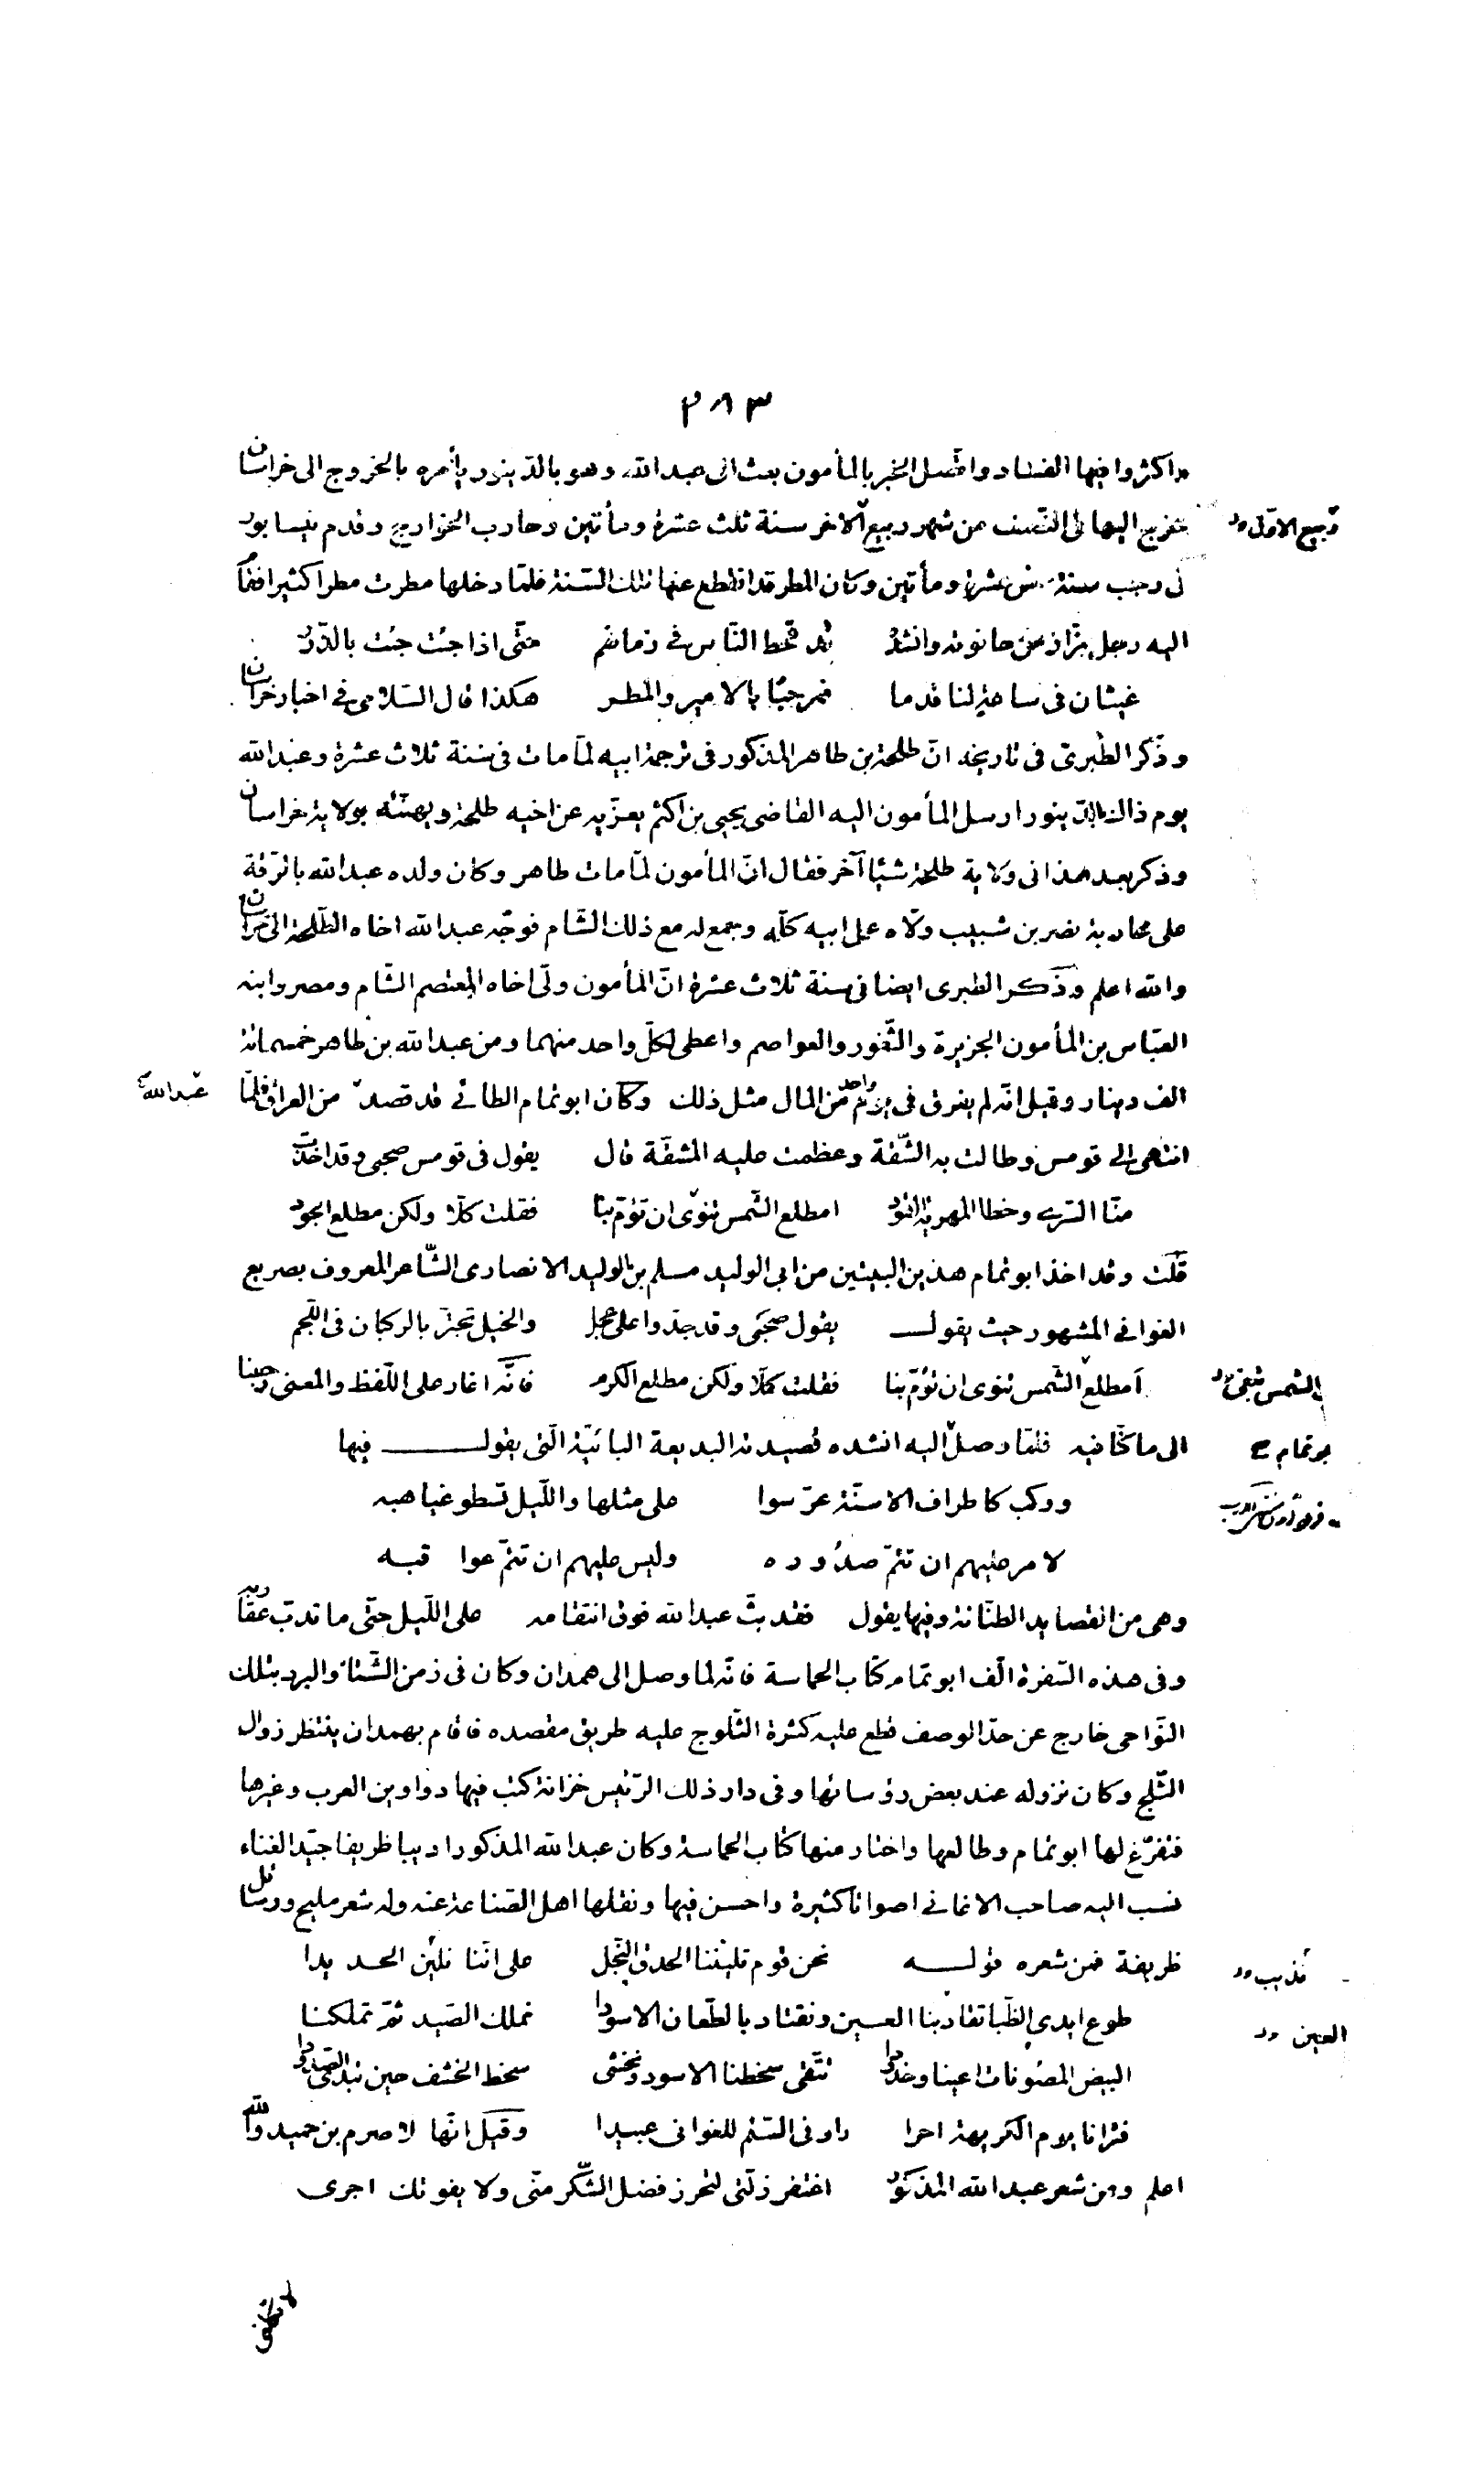 ٢٨٣
واكثروا فيها الفساد واتّصل الخبر بالمأمون بعث الى عبد الله وهو بالدّينور يأمره بالخروج الى خراسان
فخرج اليها فى النّصف من شهر ربيع الآخر سنة ثلث عشرة ومأتين وحارب الخوارج وقدم نيسابور
ربيع الاوّل
فى رجب سنة عشرة ومأتين وكان المطر قد انقطع عنها تلك السّنة فلمّا دخلها مطرت مطرا كثيرا فقام
اليه رجل بزّاز من حانوته وانشد قد قحط النّاس فى زمانهم حتّى اذا جئت جئت بالدّرر
غيثان فى ساعة لنا قدما فمرحبًا بالامير والمطر هكذا قال السّلامى فى اخبار خراسان
وذكر الطّبرى فى تاريخه انّ طلحة بن طاهر المذكور فى ترجمة ابيه لمّا مات فى سنة ثلاث عشرة وعبد الله
يوم ذاك بالدّينور ارسل المأمون اليه القاضى يحيى بن اكثم يعزّيه عن اخيه طلحة ويهنّئه بولاية خراسان
وذكر بعد هذا فى ولاية طلحة شيئا آخر فقال انّ المأمون لمّا مات طاهر وكان ولده عبد الله بالرّقة
على محاربة نصر بن شبيب ولّاه عمل ابيه كلّه وجمع له مع ذلك الشّام فوجّه عبد الله اخاه الطّلحة الى خراسان
والله اعلم وذكر الطبرى ايضا فى سنة ثلاث عشرة انّ المأمون ولّى اخاه المعتصم الشّام ومصر وابنه
العبّاس بن المأمون الجزيرة والثّغور والعواصم واعطى لكلّ واحد منهما ومن عبد الله بن طاهر خمسمائة
الف دينار وقيل انّه لم يفرق فى يوم واحد من المال مثل ذلك وكان ابو تمام الطائى قد قصد من العراق فلمّا
عبد الله
انتهى الى قومس وطالت به الشّقة وعظمت عليه المشقّة قال يقول فى قومس صحبى وقد اخذت
منّا السّرى وخطا المهريّة القود امطلع الشّمس تنوى ان تؤمّ بنا فقلت كلّا ولكن مطلع الجود
قلت وقد اخذ ابو تمام هذين البيتين من ابى الوليد مسلم بن الوليد الانصارى الشّاعر المعروف بصريع
الغوانى المشهور حيث يقول يقول صحبى وقد جدّوا على عجل والخيل تجترّ بالركبان فى اللّجم
أمطلع الشّمس تنوى ان تؤمّ بنا فقلت كلّا ولكن مطلع الكرم فانّه اغار على اللّفظ والمعنى رجعنا
الشمس تبغى
الى ما كنّا فيه فلمّا وصل اليه انشده قصيدته البديعة البائيّة الّتى يقول فيها
بو تمام
وركب كاطراف الاسنّة عرّسوا على مثلها واللّيل تسطو غياهبه
لامر عليهم ان تتمّ صدوره وليس عليهم ان تتمّ عواقبه
وهى من القصايد الطنّانة وفيها يقول فقد بثّ عبد الله خوف انتقامه على اللّيل حتّى ما تدبّ عقاربه
وفى هذه السّفرة الّف ابو تمام كتاب الحماسة فانّه لما وصل الى همدان وكان فى زمن الشّتاء والبرد بتلك
النّواحى خارج عن حدّ الوصف قطع عليه كثرة الثّلوج عليه طريق مقصده فاقام بهمدان ينتظر زوال
الثّلج وكان نزوله عند بعض رؤسائها وفى دار ذلك الرّئيس خزانة كتب فيها دواوين العرب وغيرها
فتفرّغ لها ابو تمام وطالعها واختار منها كتاب الحماسة وكان عبد الله المذكور اديبا ظريفا جيّد الغناء
نسب اليه صاحب الاغانى اصواتا كثيرة واحسن فيها ونقلها اهل الصّناعة عنه وله شعر مليح ورسائل
ظريفة فمن شعره قوله نحن قوم تليّننا الحدق النّجل على انّنا نليّن الحديدا
تذيب
طوع ايدى الظّبا تقاد بنا العين ونقتاد بالطّعان الاسودا نملك الصّيد ثمّ تملكنا
العين
البيض المصونات اعينا وخدودا تتّقى سخطنا الاسود ونخشى سخط الخشف حين تبدى الصّدودا
فترانا يوم الكريهة احرارا وفى السّلم للغوانى عبيدا وقيل انّها لاصرم بن حميد والله
اعلم ومن شعر عبد الله المذكور اغتفر زلّتى لتحرز فضل الشّكر منّى ولا يفوتك اجرى